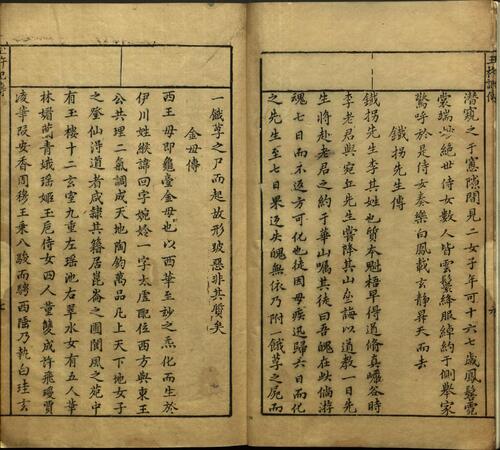 潛窺之于窻隙間見二女子年可十六七歲鳳髻霓
裳端妙絶世侍女數人皆雲鬟絳服綽約于側舉家
驚呼於是侍女奏樂白鳳載玄靜昇天而去
鐵拐先生傳
鐵拐先生李其姓也質本魁梧早得道修真巖谷時
李老君與宛丘先生嘗降其山齋誨以道教一日先
生將赴老君之約于華山囑其徒曰吾魄在此倘游
魂七日而不返方可化也徒因母疾迅歸六日而化
之先生至七日果返失魄無依乃附一餓莩之屍而
一餓莩之尸而起故形跛惡非其質矣
金母傳
西王母即龜臺金母也以西華至妙之炁化而生於
伊川姓緱諱回字婉妗一字太虛配位西方與東王
公共理二氣調成天地陶鈞萬品凡上天下地女子
之登仙得道者咸隷其籍居崑崙之圃閬風之苑中
有玉樓十二玄室九重左瑶池右翠水女有五人華
林媚蘭青娥瑶姬玉卮侍女四人董雙成許飛瓊賈
凌華段安香周穆王乘八駿西陟乃執白珪玄